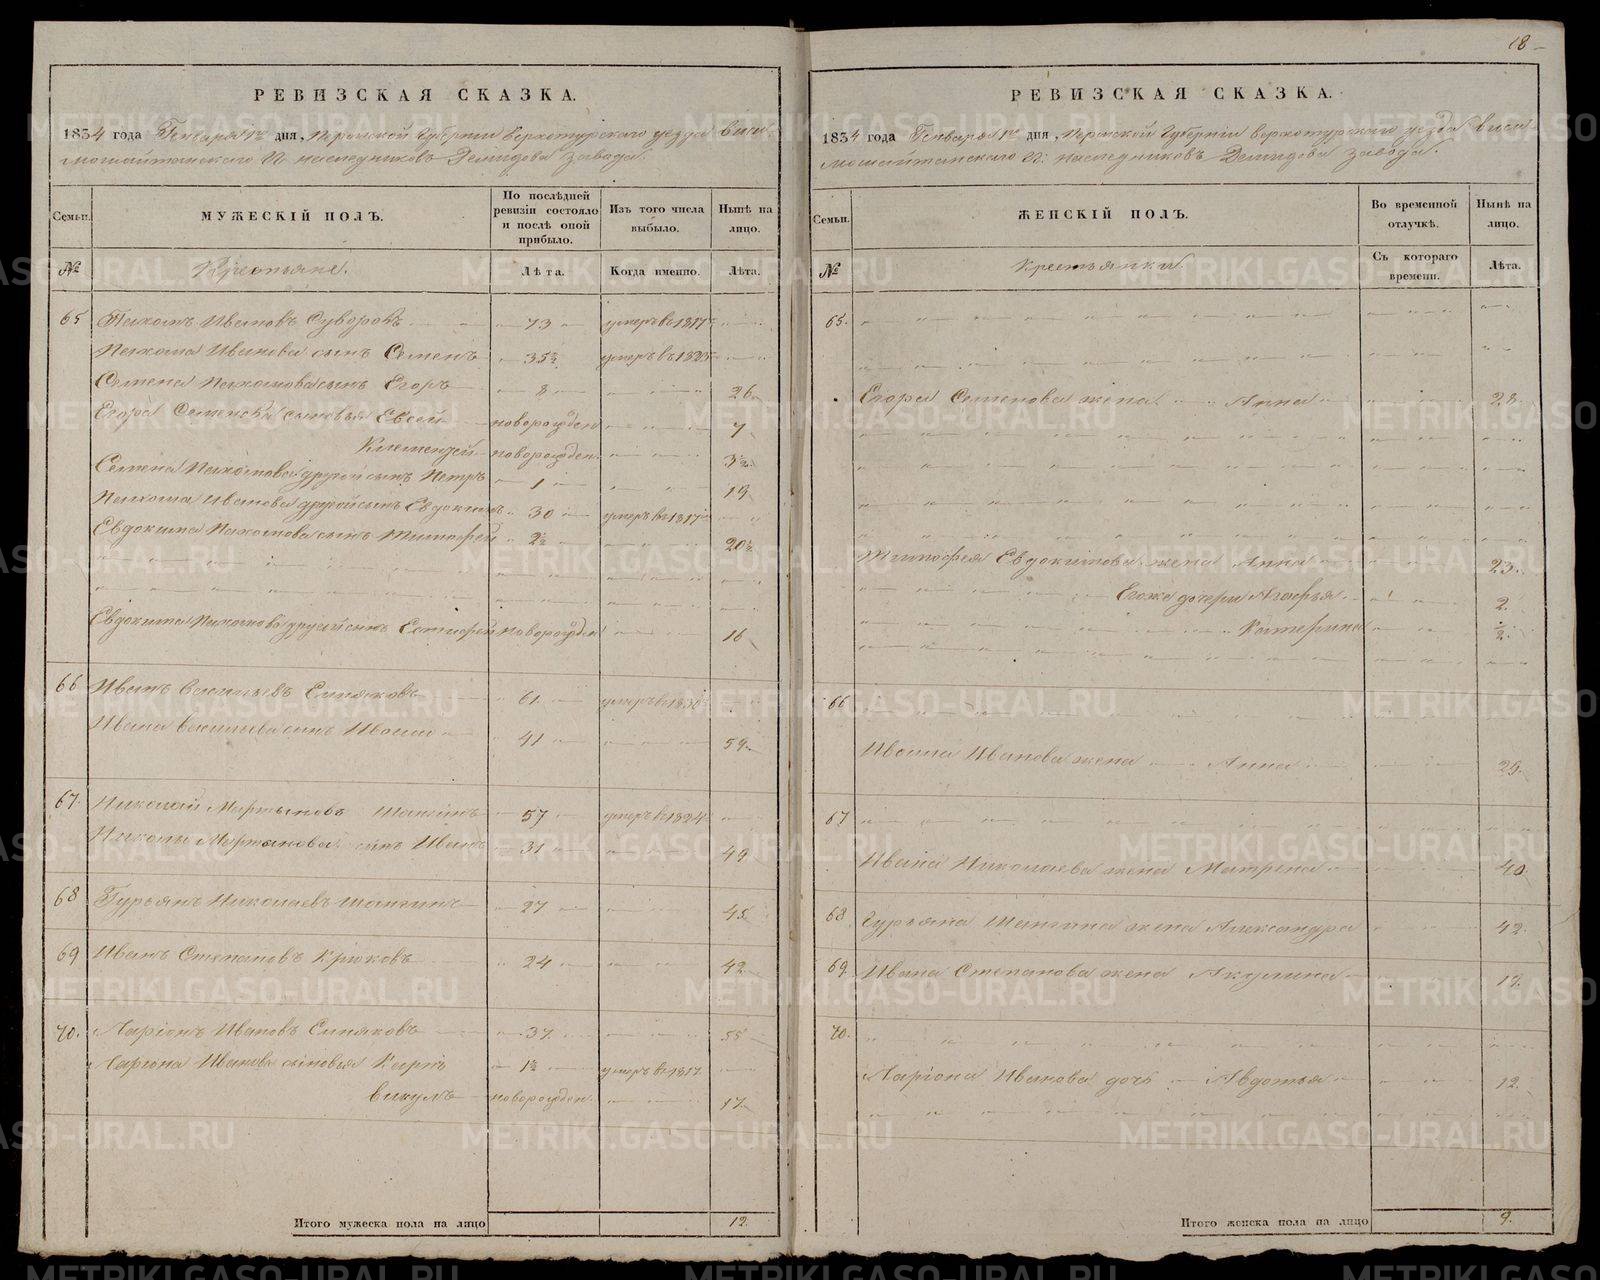 18
РЕВИЗСКАЯ СКАЗКА.
1834 года Генваря 1го дня, Пермской Губернии Верхотурского уезда Виси-
мошайтанскаго П. наследниковъ Демидова завода.
Семьи. МУЖЕСКІЙ ПОЛЪ. По послѣдней ревизіи состояло и послѣ оной прибыло. Изъ того числа выбыло. Нынѣ на лицо.
№ Крестьяне. Лѣта. Когда именно. Лѣта.
65 Пахомъ Ивановъ Суворовъ 73 умеръ въ 1817
Пахома Иванова сынъ Семенъ 35½ умеръ въ 1825
Семена Пахомова сынъ Егоръ 8 26
Егора Семенова сыновья Евсей новорожден 7
Климентей новорожден 3½
Семена Пахомова другой сынъ Петръ 1 19
Пахома Иванова другой сынъ Евдокимъ 30 умеръ въ 1817
Евдокима Пахомова сынъ Тимофей 2½ 20½
Евдокима Пахомова другой сынъ Естифей новорожден 16
66 Иванъ Васильевъ Синяковъ 61 умеръ въ
Ивана Васильева сынъ 41 59
67. Николай Мартыновъ 57 умеръ въ 1824
Николы Мартынова сынъ Иванъ 31 49
68 Гурьянъ Николаевъ 27 45
69 Иванъ Степановъ Крюковъ 24 42
70. Ларіонъ Ивановъ Синяковъ 37 55
Ларіона Иванова сыновья Карпъ 1½ умеръ въ 1817
Викулъ новорожден. 17
Итого мужеска пола на лицо 12
РЕВИЗСКАЯ СКАЗКА.
1834 года Генваря 1го дня, Пермской Губерніи Верхотурскаго уезда Виси-
мошайтанскаго П: наследниковъ Демидова завода.
Семьи. ЖЕНСКІЙ ПОЛЪ. Во временной отлучкѣ. Нынѣ на лицо.
№ Крестьянки. Съ котораго времени. Лѣта.
65.
Егора Семенова жена Анна 28
Тимофея Евдокимова жена Анна 23.
Егоже дочери Агафья 2.
Катерина ½
66
Иванова жена Анна 29.
67
Ивана Николаева жена Матрена 40
68 Гурьяна жена Александра 42.
69. Ивана Степанова жена Акулина
70.
Ларіона Иванова дочь Авдотья 12.
Итого женска пола на лицо 9.
METRIKI.GASO-URAL.RU